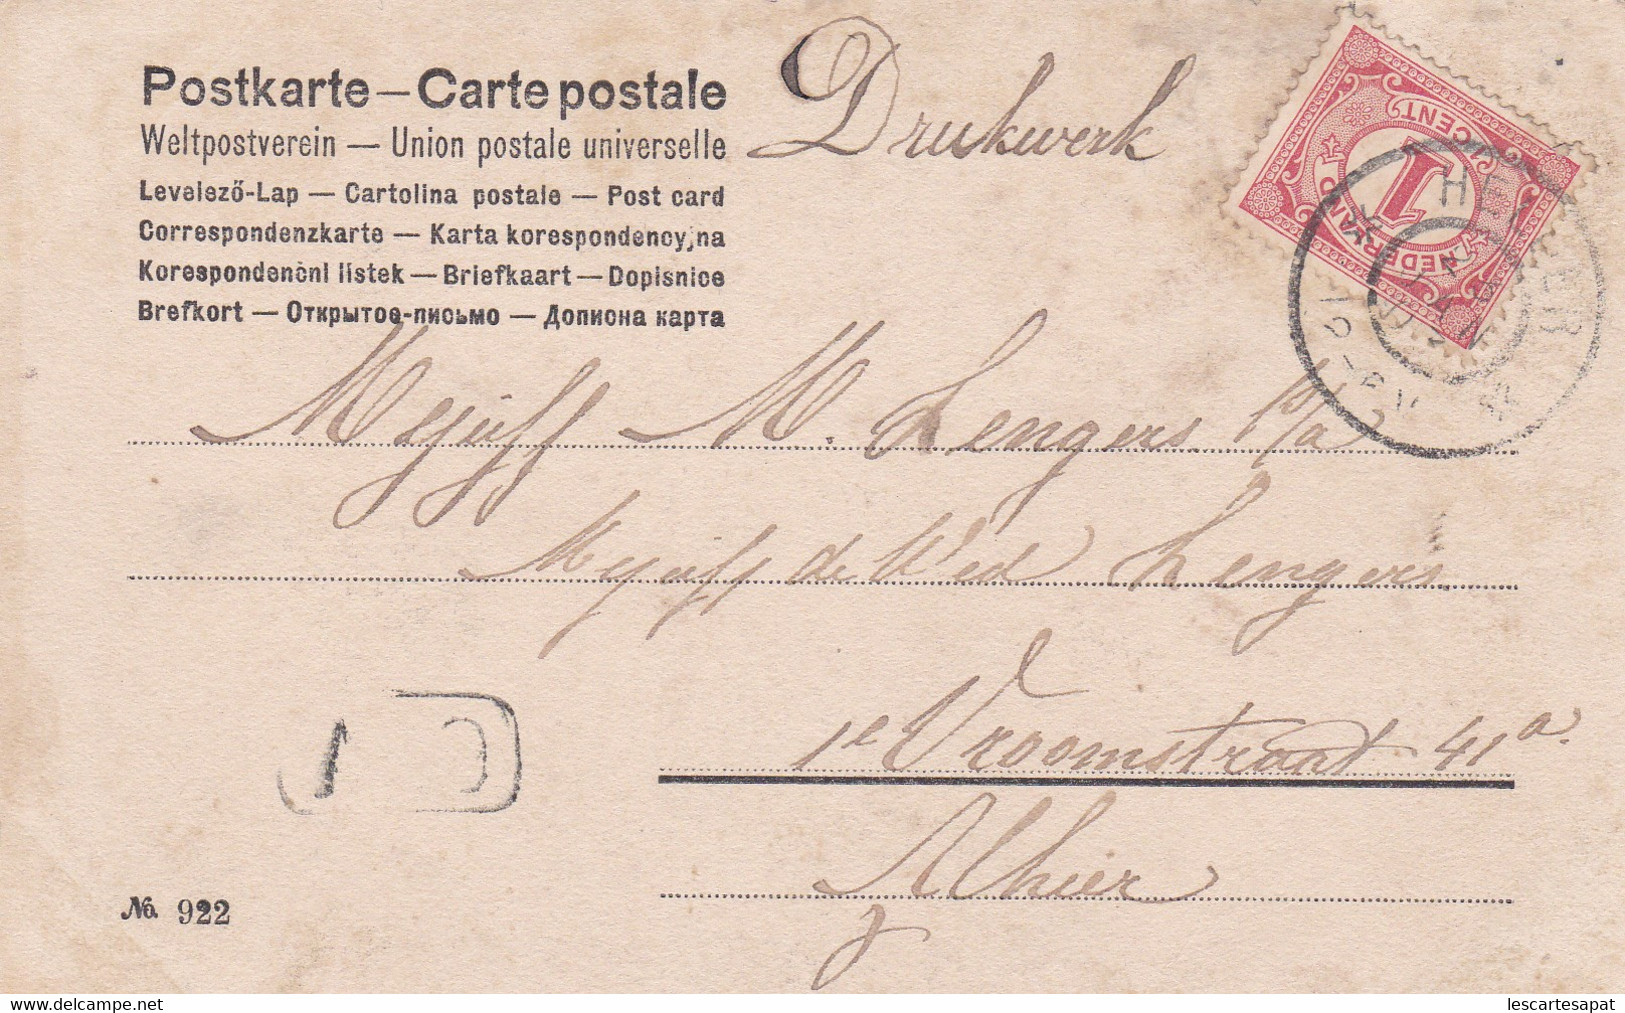 Postkarte — Carte postale
Weltpostverein — Union postale universelle
Levelező-Lap — Cartolina postale — Post card
Correspondenzkarte — Karta korespondencyjna
Korespondenční lístek — Briefkaart — Dopisnice
Brefkort — Открытое-письмо — Дописна карта
Drukwerk
NEDERLAND
1 CENT 1
1
HE ER
12-
Mejuff M. Lengers P/a
Mejuff de Wed Lengers
1e Vroomstraat 41a.
Alhier
1
No. 922
delcampe.net
lescartesapat